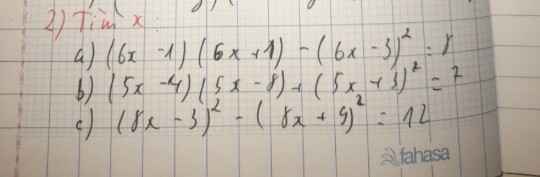 2) Tìm x :
a) (6x - 1) (6x + 1) - (6x - 3)² = 8
b) (5x - 4) (5x - 8) + (5x + 3)² = 7
c) (8x - 3)² - (8x + 9)² = 12
fahasa